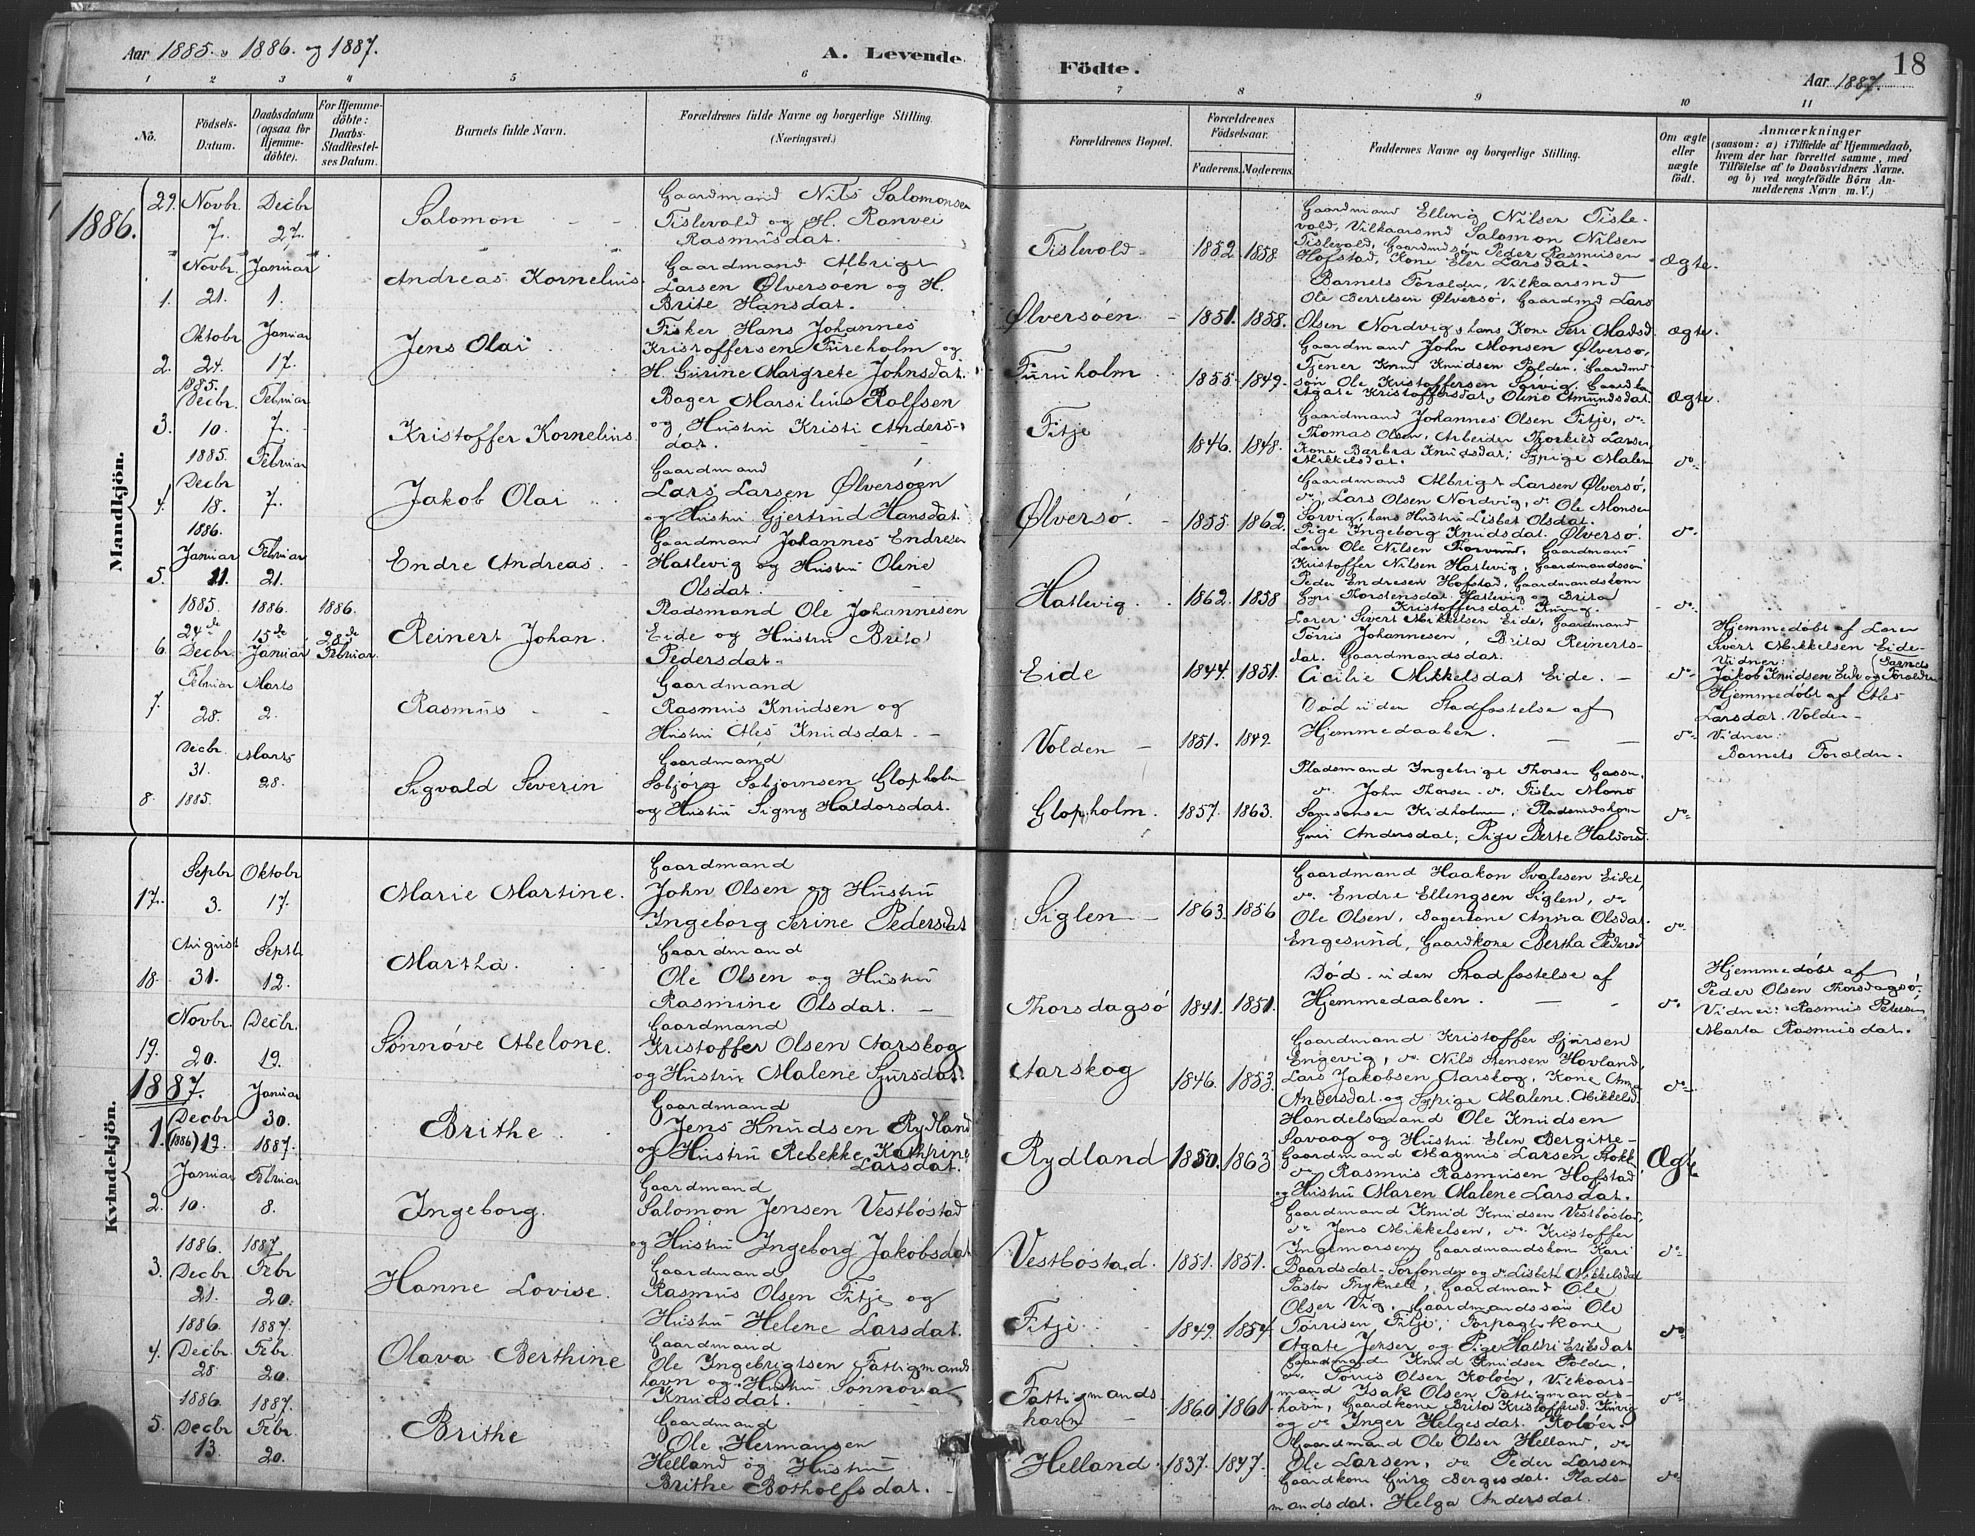 Aar 1885. " 1886. og 1887.
A. Levende
Födte.
18
Aar 1887.
1 2 3 4 5 6 7 8 9 10 11
No.
Födsels-Datum.
Daabsdatum (ogsaa for Hjemme-döbte).
For Hjemme-döbte: Daabs-Stadfæstel-ses Datum.
Barnets fulde Navn.
Forældrenes fulde Navne og borgerlige Stilling.
(Næringsvei.)
Forældrenes Bopæl.
Forældrenes Födselsaar.
Faderens. Moderens.
Faddernes Navne og borgerlige Stilling.
Om ægte eller uægte födt.
Anmærkninger
(saasom: a) i Tilfælde af Hjemmedaab,
hvem der har forrettet samme, med
Tilföielse af to Daabsvidners Navne.
og b) ved uægtefödte Börn An-
melderens Navn m. V.)
Mandkjön.
1886.
29. Novbr 7. Decbr 27.
Salomon
Gaardmand Nils Salomonsen
Tislevold og H. Ranvei
Rasmusdat.
Tislevold 1852 1858
Gaardmand Elling Nilsen Tisle-
vold, Vilkaarsmd Salomon Nilsen
Tislevold, Gaardmdsøn Peder Rasmusen
Hofstad, Kone Eler Larsdat.
Ægte.
1. Novbr. 21. Januar 1.
Andreas Kornelius
Gaardmand Albrigt
Larsen Ølversøen og H.
Brite Hansdat.
Ølversøen 1851. 1858.
Barnets Forældre, Vilkaarsmd
Ole Berretsen Ølversø, Gaardmd Lars
Olsen Nordvig, hans Kone Serr Madsd.
Ægte.
2. Oktobr 24. Januar 17.
Jens Olai
Fisker Hans Johannes
Kristoffersen Fureholm og
H. Gurine Margrete Johnsdat.
Furuholm 1855 1849
Gaardmand John Monsen Ølversø,
Tjener Knud Knudsen Polden, Gaardmd
søn Ole Kristoffersen Sørvig, Gaardko
Agate Kristoffersdat, Olino Amundsdat.
Ægte.
3. 1885. Decbr. 10. Februar 7.
Kristoffer Kornelius
Bager Marsilius Rolfsen
og Hustru Kristi Anders-
dat.
Fitje 1846. 1848.
Gaardmand Johannes Olsen Fitje, do
Thomas Olsen, Arbeider Thorkild Larsen,
Kone Barbra Knudsdat, Pige Malen
Mikkelsdat.
do
4. 1885. Decbr 18. Februar 7.
Jakob Olai
Gaardmand
Lars Larsen Ølversøen
og Hustru Gjertrud Hansdat.
Ølversø. 1855 1862.
Gaardmand Albrigt Larsen Ølversø,
do Lars Olsen Nordvig, do Ole Monsen
Sørvig, hans Hustru Lisbet Olsdat.
Pige Ingeborg Knudsdat. Ølversø.
do
5. 1886. Januar 11. Februar 21.
Endre Andreas
Gaardmand Johannes Endresen
Hatlevig og Hustru Oline
Olsdat.
Hatlevig. 1862. 1858
Lærer Ole Nilsen, Gaardmand
Kristoffer Nilsen Hatlevig, Gaardmandssøn
Peder Endresen Hofstad, Gaardmandskone
Guri Thorstensdat. Hatlevig og Brita
Kristoffersdat.
do
6. 1885. 24de Decbr. 1886. 15de Januar 1886. 28de Februar.
Reinert Johan.
Pladsmand Ole Johannesen
Eide og Hustru Brita
Pedersdat.
Eide 1844. 1851.
Lærer Sivert Mikkelsen Eide, Gaardmand
Tørris Johannesen, Brita Reinerts-
dat. Gaardmandsdat.
Cicilie Mikkelsdat Eide.
do
Hjemmedøbt af Lærer
Sivert Mikkelsen Eide.
Vidner: Barnets
Jakob Knudsen Eide og Forældre
7. Februar 28. Marts 2.
Rasmus
Gaardmand
Rasmus Knudsen og
Hustru Ales Knudsdat.
Volden 1851. 1849.
Død uden Stadfæstelse af
Hjemmedaaben.
do
Hjemmedøbt af Ales
Larsdat. Volden
Vidner:
Barnets Forældre.
8. Decbr. 31. 1885. Marts 28.
Sigvald Severin
Gaardmand
Sebjørn Sebjørnsen Glopholm
og Hustru Signy Haldorsdat.
Glopholm. 1857. 1863.
Pladsmand Ingebrigt Thorsen,
do John Thorsen do Fisker Mons
Samsonsen Kidholmen, Pladsmdskone
Guri Andersdat, Pige Berte Halvorsd.
do
Kvindekjön.
17. Septbr 3. Oktobr 17.
Marie Martine.
Gaardmand
John Olsen og Hustru
Ingeborg Serine Pedersdat
Siglen 1863. 1856
Gaardmand Haakon Svalesen Eidet,
do Endre Ellingsen Siglen, do
Ole Olsen, Bagerkone Anna Olsdat.
Engesund, Gaardkone Bertha Pedersd
do
18. August 31. Septb. 12.
Martha.
Gaardmand
Ole Olsen og Hustru
Rasmine Olsdat.
Thorsdagsø 1841. 1851.
Død uden Stadfæstelse af
Hjemmedaaben.
do
Hjemmedøbt af
Peder Olsen Thorsdagsø.
Vidner: Rasmus Petersen
Marta Rasmusdat.
19. Novbr. 20. Decbr. 19.
Sønnøve Abelone.
Gaardmand
Kristoffer Olsen Aarskog
og Hustru Malene Sjursdat.
Aarskog 1846. 1853.
Gaardmand Kristoffer Sjursen
Engevig, do Nils Stensen Hovland,
Lars Jakobsen Aarskog, Kone Anna
Andersdat og Pige Malene Mikkelsd.
do
1887.
1. Decbr (1886) 19. Januar 30. 1887.
Brithe
Gaardmand
Jens Knudsen Rydland
og Hustru Rebekke Kathrine
Larsdat.
Rydland 1850. 1863
Handelsmand Ole Knudsen
Savaag og Hustru Elen Bergitte
Gaardmand Magnus Larsen Stokk
do Rasmus Rasmusen Hofstad
og Hustru Maren Malene Larsdat.
Ægte
2. Januar 10. Februar 8.
Ingeborg.
Gaardmand
Salomon Jensen Vestbøstad
og Hustru Ingeborg Jakobsdat
Vestbøstad. 1851. 1851.
Gaardmand Knud Knudsen Vestbøstad,
do Jens Mikkelsen, do Kristoffer
Ingemarsen, Gaardmandskone Kari
Baardsdat. Sørfonden og do Lisbeth Mikkelsdat
do
3. 1886. Decbr 21. 1887. Febr 20.
Hanne Lovise.
Gaardmand
Rasmus Olsen Fitje og
Hustru Helene Larsdat.
Fitje 1849. 1854.
Pastor Fryknell, Gaardmand Ole
Olsen Vig. Gaardmandssøn Ole
Tørrisen Fitje, Forpagtkone
Agate Jensen og Pige Haldri Eriksdat
do
4. 1886. Decbr. 28 1887. Febr. 20.
Olava Berthine
Gaardmand
Ole Ingebrigtsen Fattigmands
havn og Hustru Sønnøva
Knudsdat.
Fattigmands-
havn 1860 1861
Gaardmand Knud Knudsen Polden,
do Tørris Olsen Koløen, Vilkaars-
mand Isak Olsen Fattigmands-
havn, Gaardkone Brita Kristoffersd.
og do Inger Helgesdat. Koløen.
do
5. 1886. Decbr 13. 1887. Febr. 20.
Brithe
Gaardmand
Ole Hermansen
Helland og Hustru
Brithe Botholfsdat.
Helland. 1837. 1847.
Gaardmand Ole Olsen Helland, do
Ole Larsen, do Peder Larsen
Gaardkone Guro Bergesdat. Plads-
mandsdat. Helga Andersdat.
do